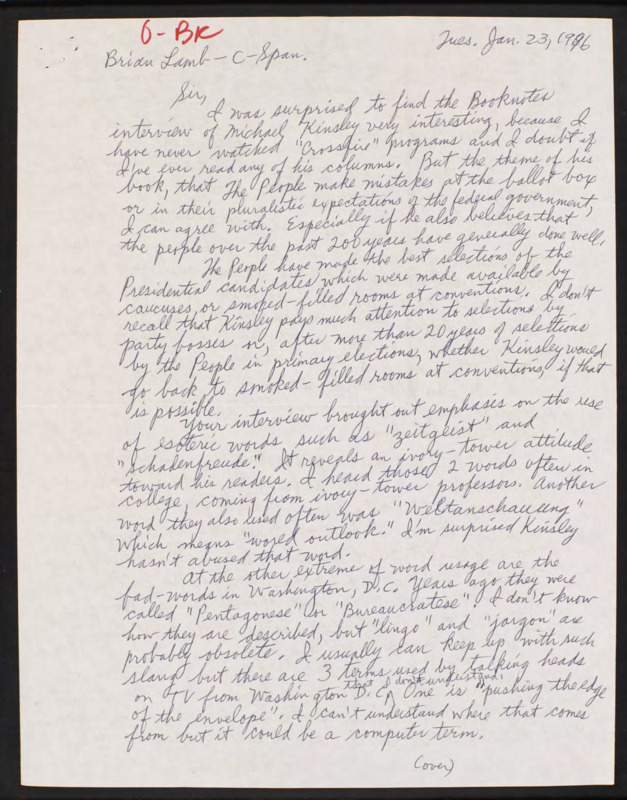 6-BK
Tues. Jan. 23, 1996
Brian Lamb — C-Span.
Sir,
I was surprised to find the Booknotes
interview of Michael Kinsley very interesting, because I
have never watched "Crossfire" programs and I doubt if
I've ever read any of his columns. But the theme of his
book, that The People make mistakes at the ballot box
or in their pluralistic expectations of the federal government,
I can agree with. Especially if he also believes that
the people over the past 200 years have generally done well.
The People have made the best selections of the
Presidential candidates which were made available by
caucuses, or smoked-filled rooms at conventions. I don't
recall that Kinsley pays much attention to selections by
party bosses or, after more than 20 years of selections
by the People in primary elections, whether Kinsley would
go back to smoked-filled rooms at conventions, if that
is possible.
Your interview brought out emphasis on the use
of esoteric words such as "zeitgeist" and
"schadenfreude." It reveals an ivory-tower attitude
toward his readers. I heard those 2 words often in
college, coming from ivory-tower professors. Another
word they also used often was "Weltanschauung"
which means "world outlook." I'm surprised Kinsley
hasn't abused that word.
At the other extreme of word usage are the
fad-words in Washington, D.C. Years ago they were
called "Pentagonese" or "Bureaucratese". I don't know
how they are described, but "lingo" and "jargon" are
probably obsolete. I usually can keep up with such
slang but there are 3 terms used by talking heads
on TV from Washington D.C. that I don't understand. One is "pushing the edge
of the envelope". I can't understand where that comes
from but it could be a computer term.
(over)